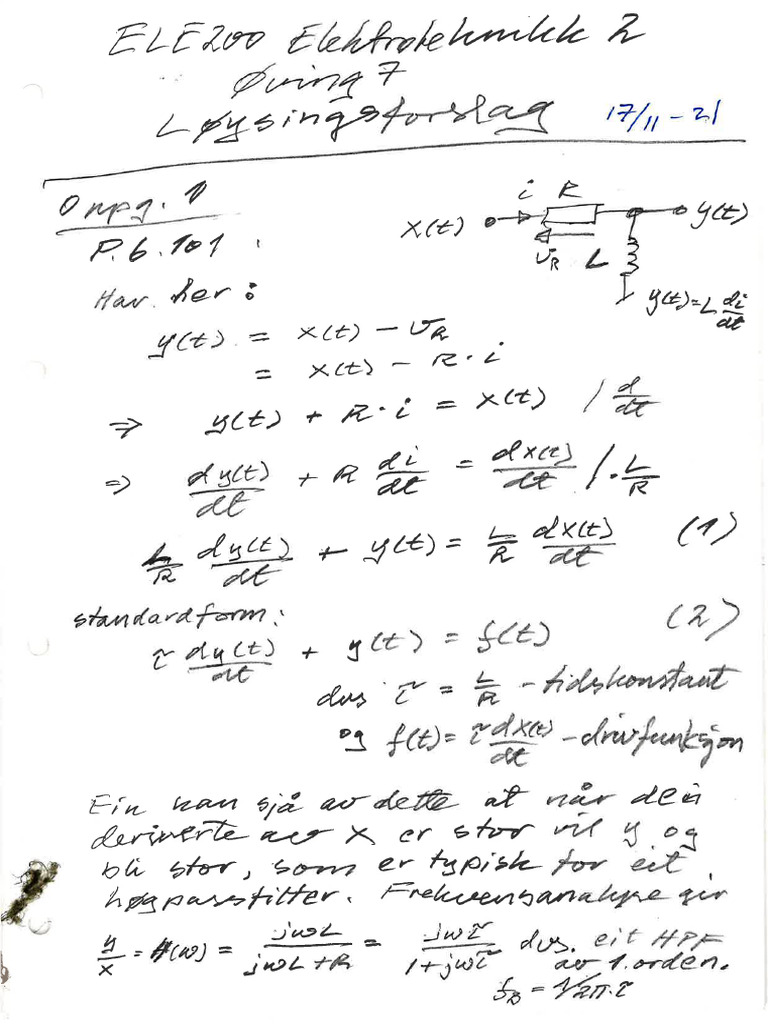 ELE200 Elektroteknikk 2
Øving 7
Løysingsforslag 17/11-21
Oppg. 1
P.6.101.
i R
X(t) y(t)
v_R L
y(t)=L di/dt
Hav her:
y(t) = x(t) - v_R
= x(t) - R·i
⇒ y(t) + R·i = x(t) / d/dt
⇒ dy(t)/dt + R di/dt = dx(t)/dt /· L/R
L/R dy(t)/dt + y(t) = L/R dx(t)/dt (1)
standardform: (2)
τ dy(t)/dt + y(t) = f(t)
dvs τ = L/R - tidskonstant
og f(t) = τ dx(t)/dt - drivfunksjon
Ein kan sjå av dette at når den
deriverte av x er stor vil y og
bli stor, som er typisk for eit
høgpassfilter. Frekvensanalyse gir
y/x = H(ω) = jωL/jωL+R = jωτ/1+jωτ dvs. eit HPF
av 1. orden.
f_B = 1/2π·τ